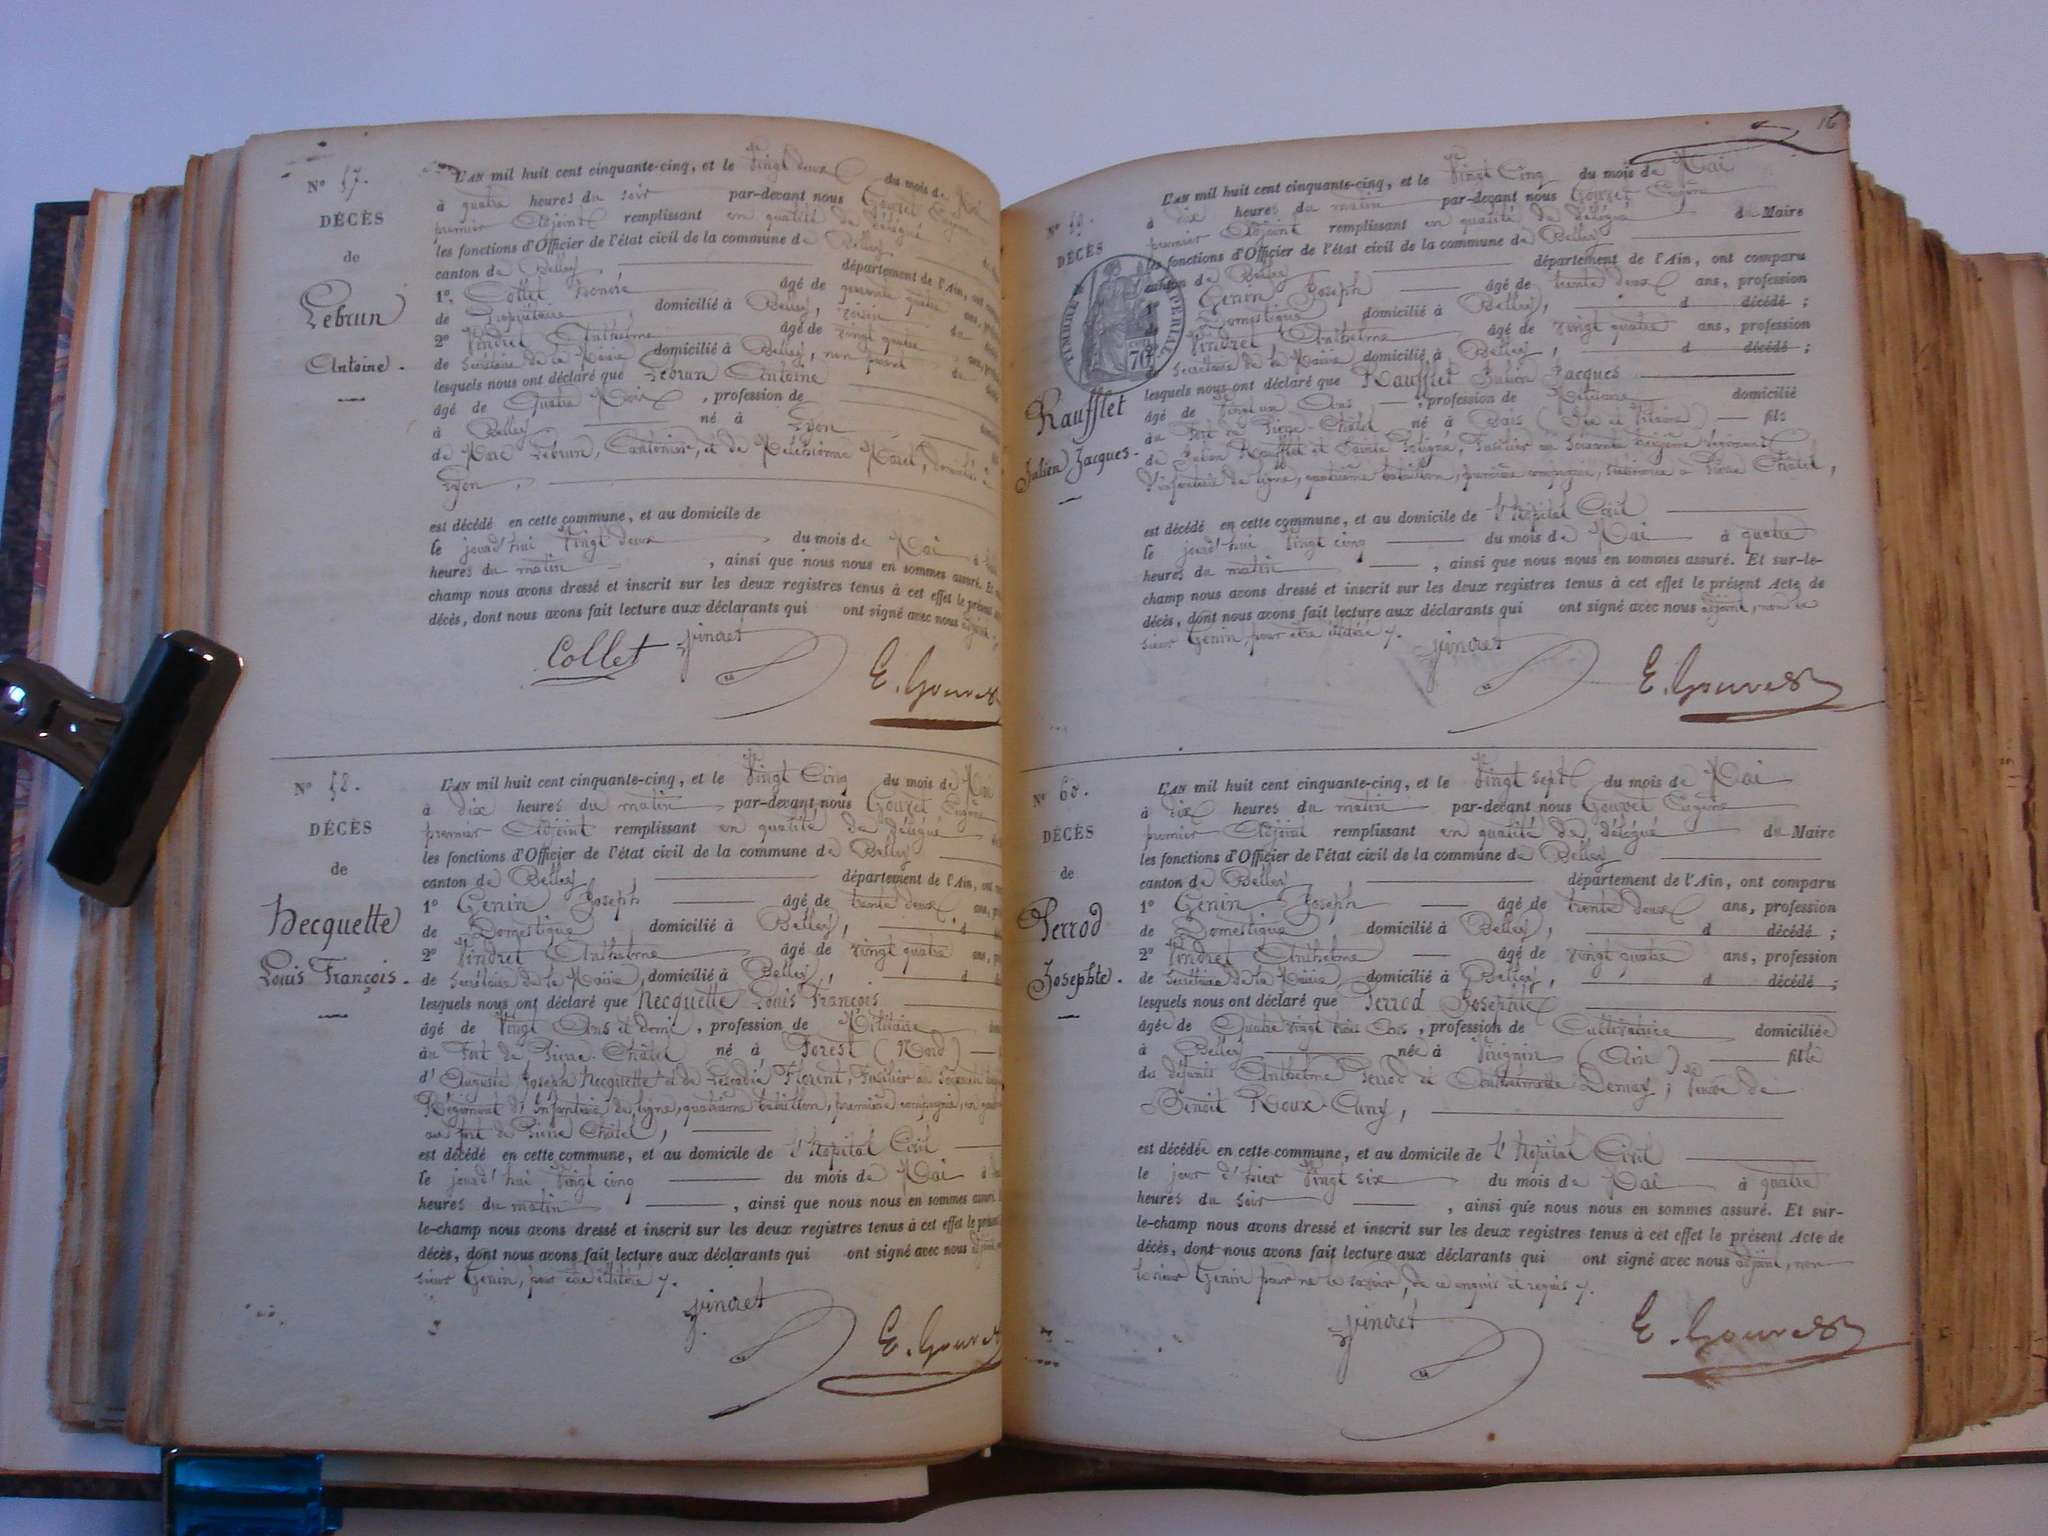 N° 57.
DÉCÈS
de
Lebrun
Antoine.
L'AN mil huit cent cinquante-cinq, et le Vingt deux du mois de Mai
à quatre heures du soir par-devant nous Gouvet Eugène
premier Adjoint remplissant en qualité de délégué
les fonctions d'Officier de l'état civil de la commune de Belley
canton de Belley département de l'Ain, ont
1° Collet Honoré âgé de quarante quatre ans,
de Propriétaire, domicilié à Belley, voisin du
2° Vindret Anthelme âgé de vingt quatre ans,
de Secrétaire de la Mairie domicilié à Belley, non parent du
lesquels nous ont déclaré que Lebrun Antoine
âgé de Quatre Mois, profession de
à Belley né à Lyon
de Marc Lebrun, Cantonnier, et de Melchionne Morel, domiciliés à
Lyon,
est décédé en cette commune, et au domicile de
le jourd'hui Vingt deux du mois de Mai à
heures du matin, ainsi que nous nous en sommes assuré. Et
champ nous avons dressé et inscrit sur les deux registres tenus à cet effet le présent
décès, dont nous avons fait lecture aux déclarants qui ont signé avec nous adjoint
Collet Vindret E. Gouvet
N° 58.
DÉCÈS
de
Hecquette
Louis François.
L'AN mil huit cent cinquante-cinq, et le Vingt Cinq du mois de Mai
à dix heures du matin par-devant nous Gouvet Eugène
premier Adjoint remplissant en qualité de délégué
les fonctions d'Officier de l'état civil de la commune de Belley
canton de Belley département de l'Ain, ont
1° Genin Joseph âgé de trente deux ans,
de Domestique domicilié à Belley, d
2° Vindret Anthelme âgé de vingt quatre ans,
de Secrétaire de la Mairie, domicilié à Belley, d
lesquels nous ont déclaré que Hecquette Louis François
âgé de Vingt Ans et demi, profession de Militaire
au Fort de Pierre-Châtel né à Forest (Nord)
d'Auguste Joseph Hecquette et de Léocadie Florent, Fusilier au Soixante
Régiment d'Infanterie de ligne, quatrième bataillon, première compagnie, en
au fort de Pierre Châtel,
est décédé en cette commune, et au domicile de l'Hôpital Civil
le jourd'hui Vingt cinq du mois de Mai à
heures du matin, ainsi que nous nous en sommes assuré.
le-champ nous avons dressé et inscrit sur les deux registres tenus à cet effet le présent
décès, dont nous avons fait lecture aux déclarants qui ont signé avec nous adjoint,
sieur Genin, pour être illitéré
Vindret E. Gouvet
16
N° 59.
DÉCÈS
TIMBRE IMPÉRIAL
70
Raufflet
Julien Jacques.
L'AN mil huit cent cinquante-cinq, et le Vingt Cinq du mois de Mai
à dix heures du matin par-devant nous Gouvet Eugène
premier Adjoint remplissant en qualité de délégué du Maire
les fonctions d'Officier de l'état civil de la commune de Belley
canton de Belley département de l'Ain, ont comparu
1° Genin Joseph âgé de trente deux ans, profession
de Domestique domicilié à Belley, d décédé ;
2° Vindret Anthelme âgé de vingt quatre ans, profession
de Secrétaire de la Mairie domicilié à Belley, d décédé ;
lesquels nous ont déclaré que Raufflet Julien Jacques
âgé de Vingt un Ans, profession de Militaire domicilié
au Fort de Pierre-Châtel né à Bais (Ille et Vilaine) fils
de Julien Raufflet et Sainte, Fusilier au Soixante Régiment
d'infanterie de ligne, quatrième bataillon, première compagnie, à Pierre Châtel,
est décédé en cette commune, et au domicile de l'Hôpital Civil
le jourd'hui Vingt cinq du mois de Mai à quatre
heures du matin, ainsi que nous nous en sommes assuré. Et sur-le-
champ nous avons dressé et inscrit sur les deux registres tenus à cet effet le présent Acte de
décès, dont nous avons fait lecture aux déclarants qui ont signé avec nous adjoint, non le
sieur Genin, pour être illitéré
Vindret E. Gouvet
N° 60.
DÉCÈS
de
Perrod
Josephte.
L'AN mil huit cent cinquante-cinq, et le Vingt sept du mois de Mai
à dix heures du matin par-devant nous Gouvet Eugène
premier Adjoint remplissant en qualité de délégué du Maire
les fonctions d'Officier de l'état civil de la commune de Belley
canton de Belley département de l'Ain, ont comparu
1° Genin Joseph âgé de trente deux ans, profession
de Domestique, domicilié à Belley, d décédé ;
2° Vindret Anthelme âgé de vingt quatre ans, profession
de Secrétaire de la Mairie, domicilié à Belley, d décédé ;
lesquels nous ont déclaré que Perrod Josephte
âgée de Quatre vingt trois Ans, profession de Cultivatrice domiciliée
à Belley née à Virignin (Ain) fille
de défunts Anthelme Perrod et Anthelmette Demay ; Veuve de
Benoît Roux-Cuny,
est décédée en cette commune, et au domicile de l'Hôpital Civil
le jour d'hier Vingt six du mois de Mai à quatre
heures du soir, ainsi que nous nous en sommes assuré. Et sur-
le-champ nous avons dressé et inscrit sur les deux registres tenus à cet effet le présent Acte de
décès, dont nous avons fait lecture aux déclarants qui ont signé avec nous adjoint, non
le sieur Genin pour ne le savoir, de ce enquis et requis
Vindret E. Gouvet